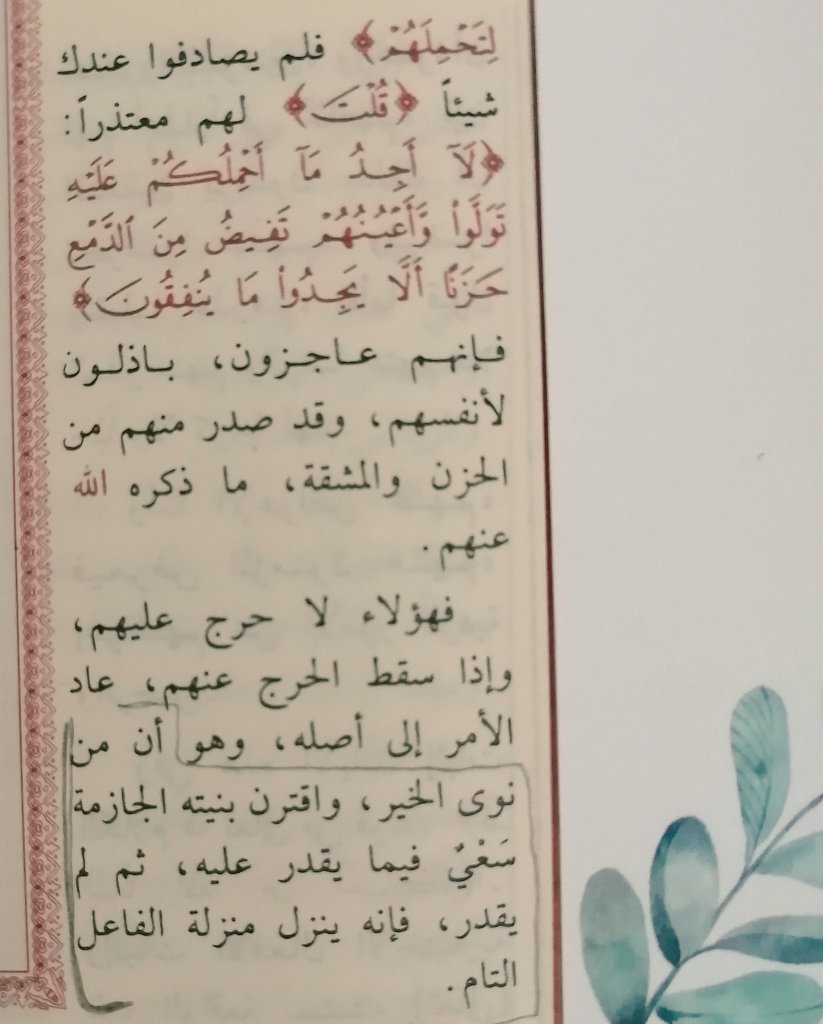 لِتَحْمِلَهُمْ﴾ فلم يصادفوا عندك
شيئاً ﴿قُلْتَ﴾ لهم معتذراً:
﴿لَآ أَجِدُ مَآ أَحْمِلُكُمْ عَلَيْهِ
تَوَلَّوا۟ وَّأَعْيُنُهُمْ تَفِيضُ مِنَ ٱلدَّمْعِ
حَزَنًا أَلَّا يَجِدُوا۟ مَا يُنفِقُونَ﴾
فإنهم عاجزون، باذلون
لأنفسهم، وقد صدر منهم من
الحزن والمشقة، ما ذكره الله
عنهم.
فهؤلاء لا حرج عليهم،
وإذا سقط الحرج عنهم، عاد
الأمر إلى أصله، وهو أن من
نوى الخير، واقترن بنيته الجازمة
سَعْيٌ فيما يقدر عليه، ثم لم
يقدر، فإنه ينزل منزلة الفاعل
التام.